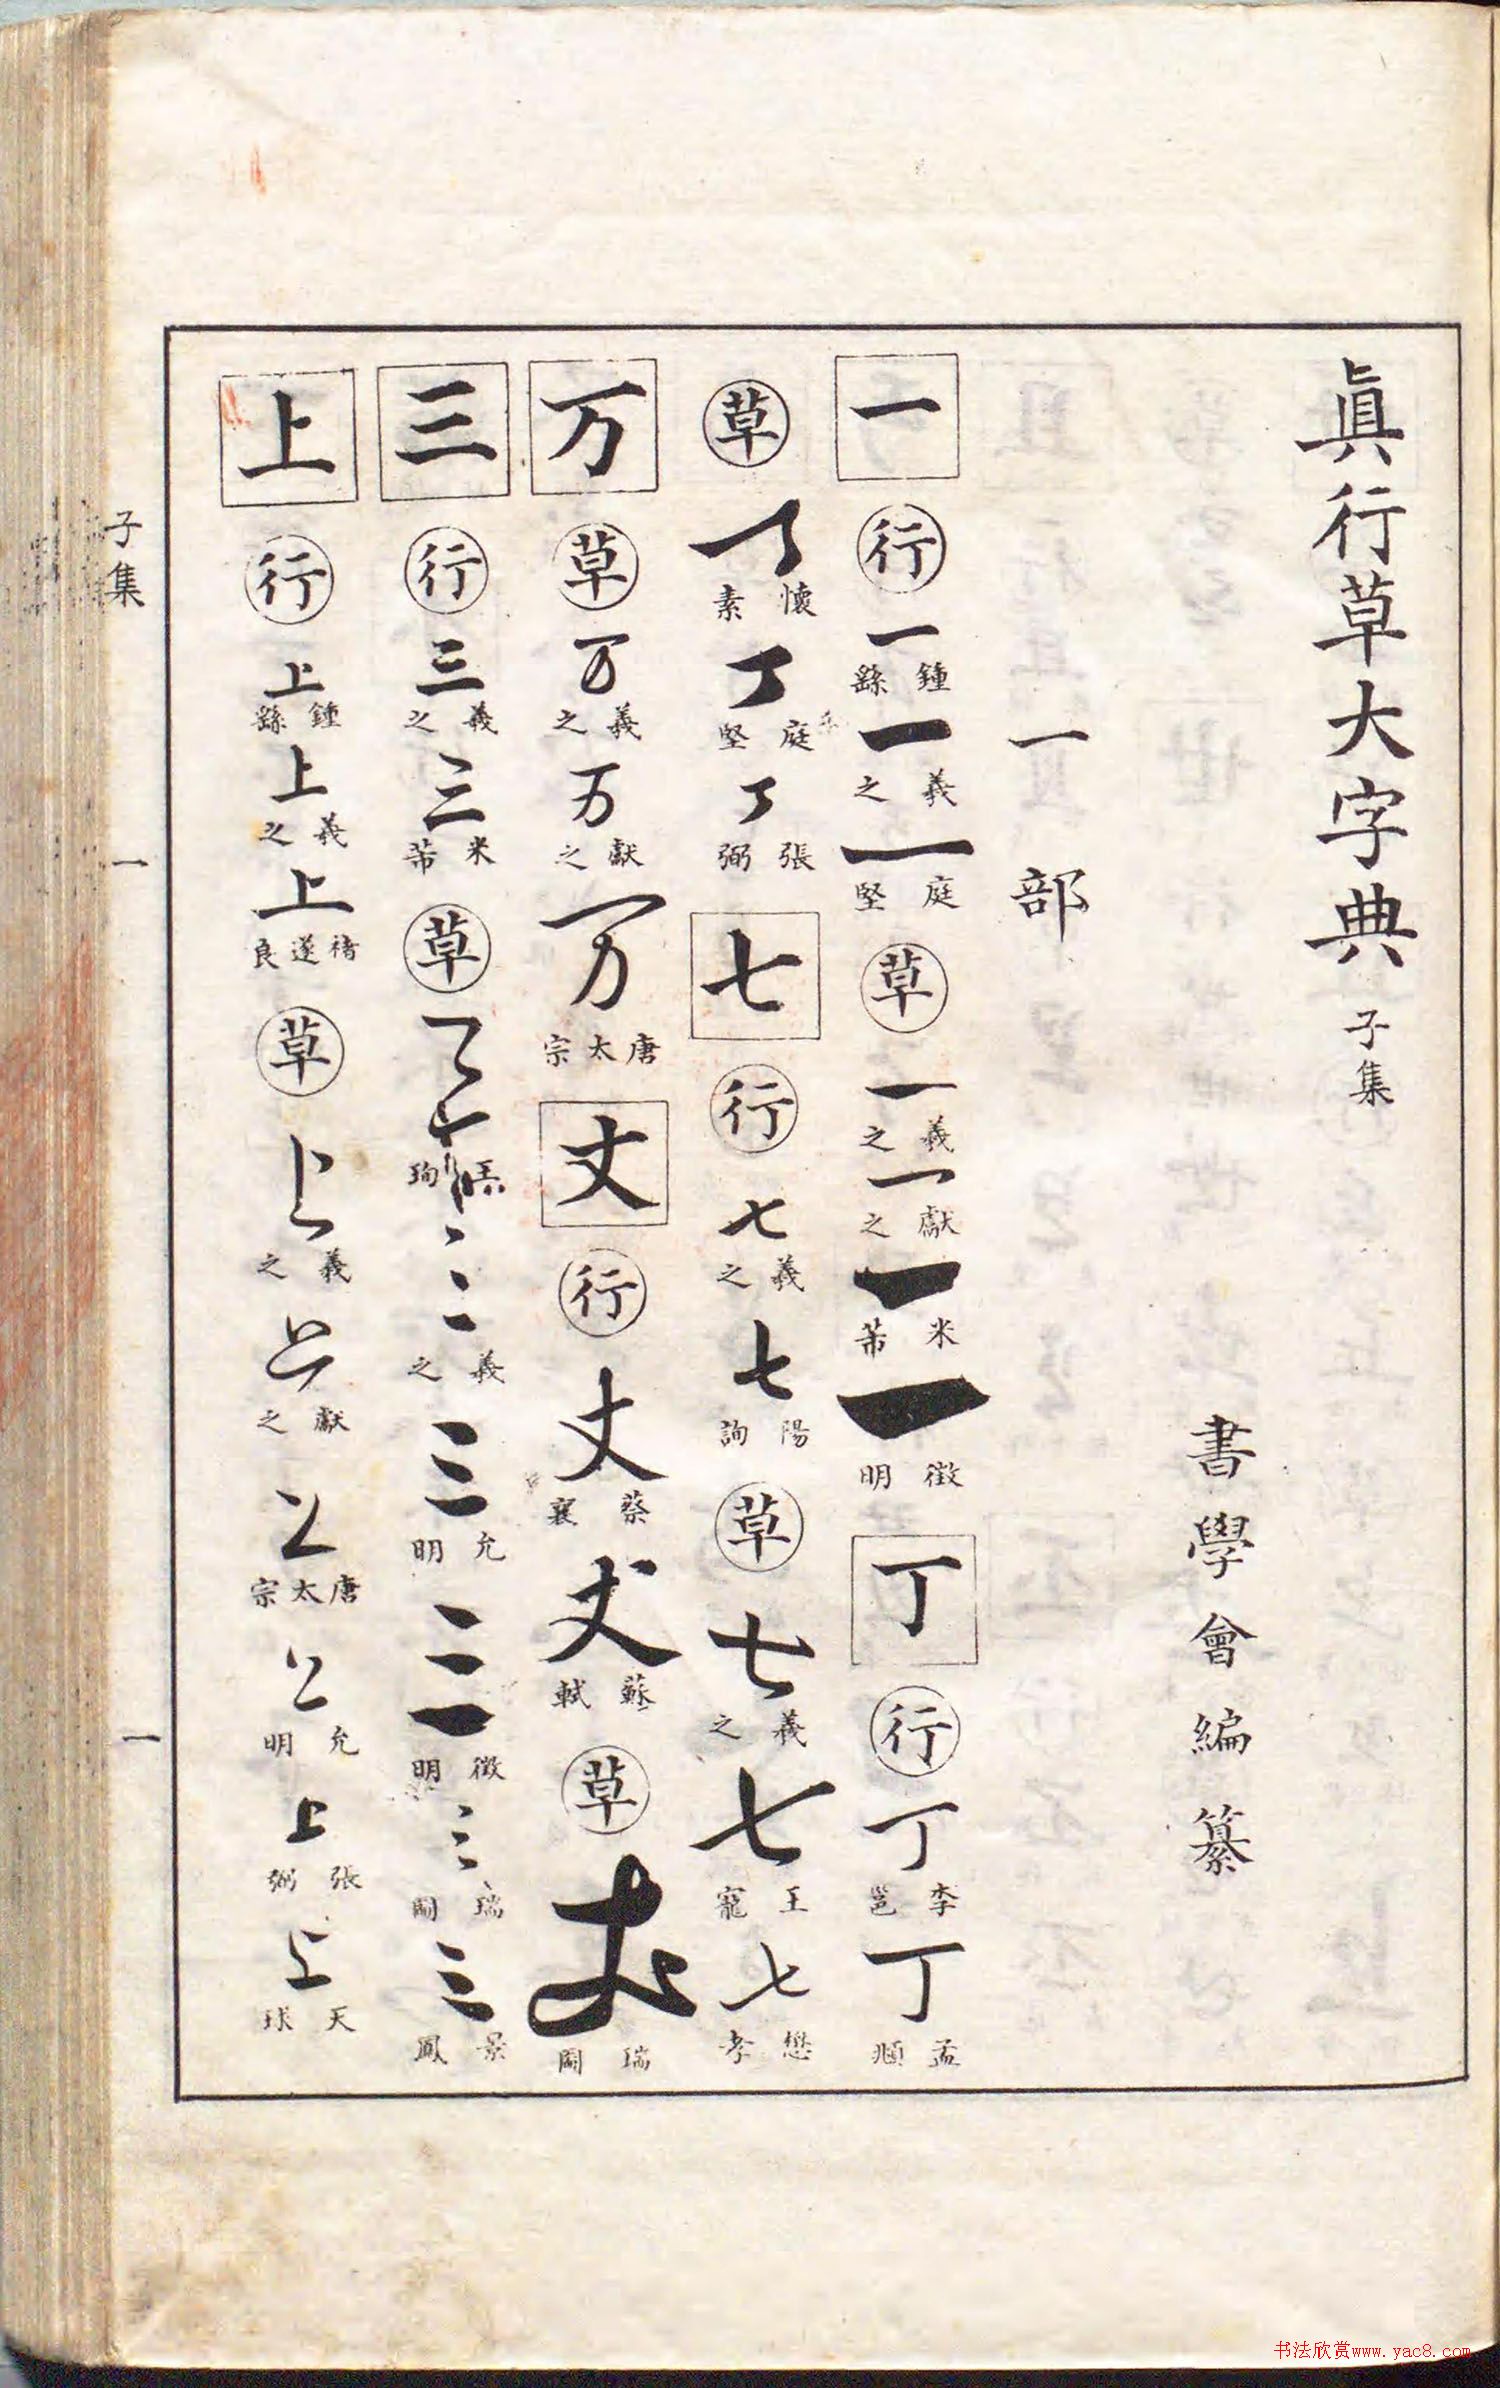 眞行草大字典 子集
書學會編纂
一部
一 行 一 鍾繇 一 羲之 一 庭堅 草 一 羲之 一 獻之 一 米芾 一 徵明 丁 行 丁 李邕 丁 孟頫
草 丁 懷素 丁 庭堅 丁 張弼 七 行 七 羲之 七 陽詢 草 七 羲之 七 王寵 七 懋孝
万 草 万 羲之 万 獻之 万 唐太宗 丈 行 丈 蔡襄 丈 蘇軾 草 丈 瑞圖
三 行 三 羲之 三 米芾 草 三 珣 三 羲之 三 允明 三 徵明 三 瑞圖 三 景鳳
上 行 上 鍾繇 上 羲之 上 褚遂良 草 上 羲之 上 獻之 上 唐太宗 上 允明 上 張弼 上 天球
子集 一 一
书法欣赏www.yac8.com